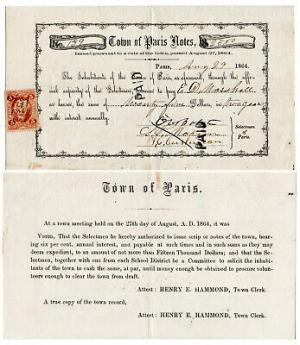 Town of Paris Notes,
Issued pursuant to a vote of the town, passed August 27, 1864.
PARIS, Aug 29 1864.
The Inhabitants of the Town of Paris, as aforesaid, through the official
capacity of the Selectmen, promise to pay E. D. Marshall
or bearer, the sum of Seventy five Dollars, in years
with interest annually.
PAID
PAID
Selectmen
of
Paris.
Town of Paris.
At a town meeting held on the 27th day of August, A. D. 1864, it was
VOTED, That the Selectmen be hereby authorized to issue scrip or notes of the town, bear-
ing six per cent. annual interest, and payable at such times and in such sums as they may
deem expedient, to an amount of not more than Fifteen Thousand Dollars; and that the Se-
lectmen, together with one from each School District be a Committee to solicit the inhabit-
ants of the town to cash the same, at par, until money enough be obtained to procure volun-
teers enough to clear the town from draft.
Attest: HENRY E. HAMMOND, Town Clerk.
A true copy of the town record,
Attest: HENRY E. HAMMOND, Town Clerk.